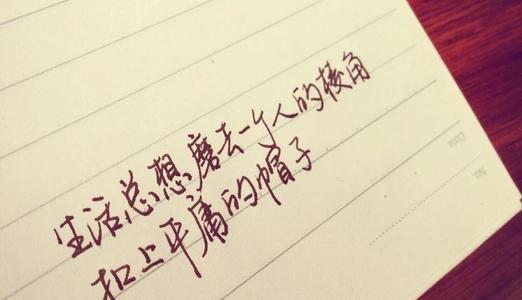 生活总想磨去一个人的棱角
扣上平庸的帽子